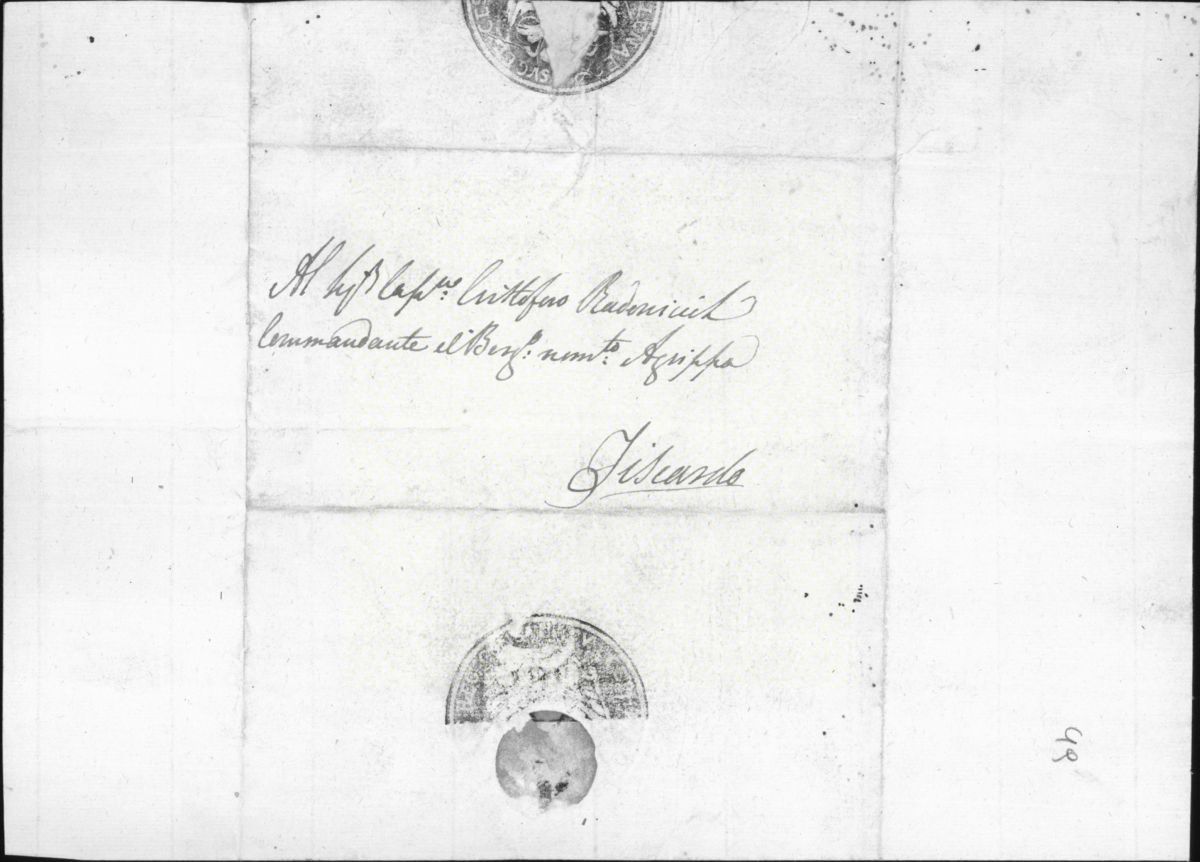 Al Sigr Capno: Cristofero Radonicich
Commandante il Brigo: nomto: Agrippa
Fiscardo
48